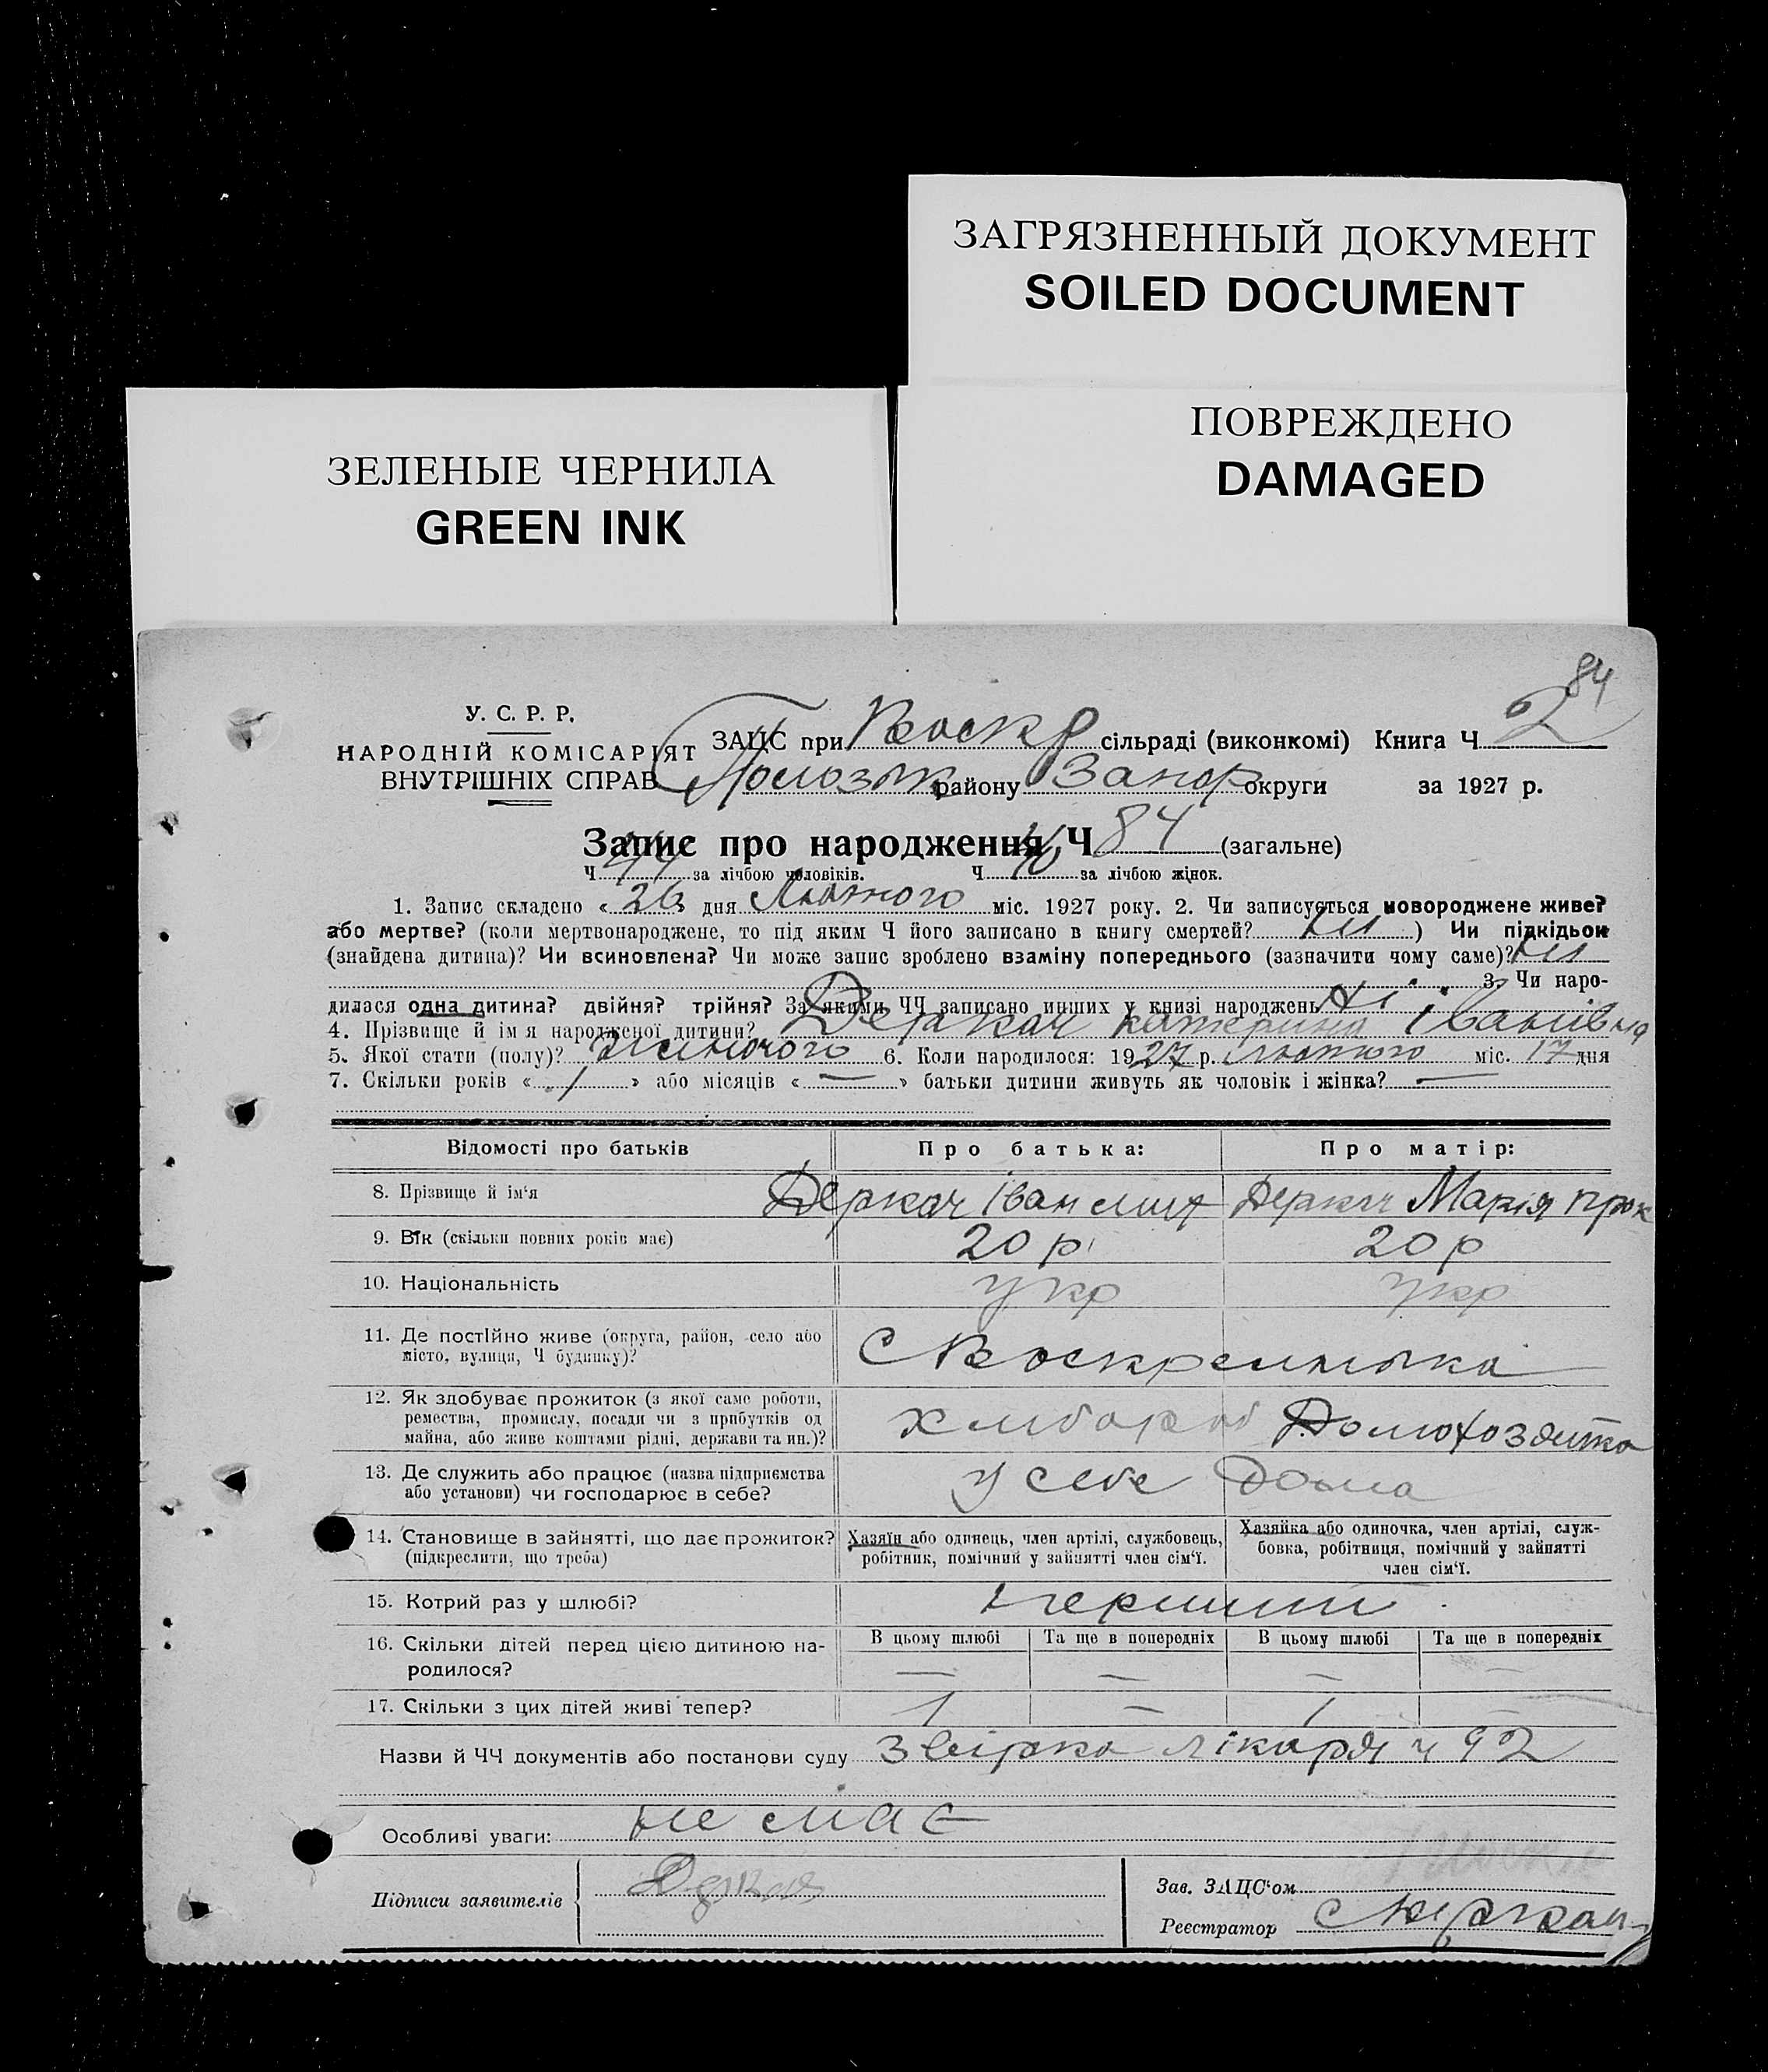 ЗАГРЯЗНЕННЫЙ ДОКУМЕНТ
SOILED DOCUMENT
ПОВРЕЖДЕНО
DAMAGED
ЗЕЛЕНЫЕ ЧЕРНИЛА
GREEN INK
84
У. С. Р. Р.
НАРОДНІЙ КОМІСАРІЯТ
ВНУТРІШНІХ СПРАВ
ЗАЦС при Воскр сільраді (виконкомі) Книга Ч 2
району Запор округи за 1927 р.
Запис про народження Ч 84 (загальне)
Ч 44 за лічбою чоловіків. Ч 40 за лічбою жінок.
1. Запис складено « 26 » дня Лютого міс. 1927 року. 2. Чи записується новороджене живе?
або мертве? (коли мертвонароджене, то під яким Ч його записано в книгу смертей? ) Чи підкідьок
(знайдена дитина)? Чи всиновлена? Чи може запис зроблено взаміну попереднього (зазначити чому саме)?
3. Чи наро-
дилася одна дитина? двійня? трійня? За якими ЧЧ записано инших у книзі народжень Ні
4. Прізвище й ім я народженої дитини? Деркач катерина Іванівна
5. Якої стати (полу)? жиночого 6. Коли народилося: 1927 р. лютого міс. 17 дня
7. Скільки років « 1 » або місяців « — » батьки дитини живуть як чоловік і жінка? —
Відомості про батьків Про батька: Про матір:
8. Прізвище й ім'я Деркач Іван Деркач Марія прок
9. Вік (скільки повних років має) 20 р 20 р
10. Національність укр укр
11. Де постійно живе (округа, район, село або
місто, вулиця, Ч будинку)? С Воскресинька
12. Як здобуває прожиток (з якої саме роботи,
ремества, промислу, посади чи з прибутків од
майна, або живе коштами рідні, держави та ин.)? хлибороб
13. Де служить або працює (назва підприємства
або установи) чи господарює в себе? у себе Дома
14. Становище в зайнятті, що дає прожиток?
(підкреслити, що треба)
Хазяїн або одинець, член артілі, службовець,
робітник, помічний у зайнятті член сім'ї.
Хазяйка або одиночка, член артілі, служ-
бовка, робітниця, помічний у зайнятті
член сім'ї.
15. Котрий раз у шлюбі? першии
16. Скільки дітей перед цією дитиною на-
родилося?
В цьому шлюбі Та ще в попередніх В цьому шлюбі Та ще в попередніх
— — — —
17. Скільки з цих дітей живі тепер? 1 — 1 —
Назви й ЧЧ документів або постанови суду лікаря ч 92
Особливі уваги: не має
Підписи заявителів
Зав. ЗАЦС'ом
Реєстратор